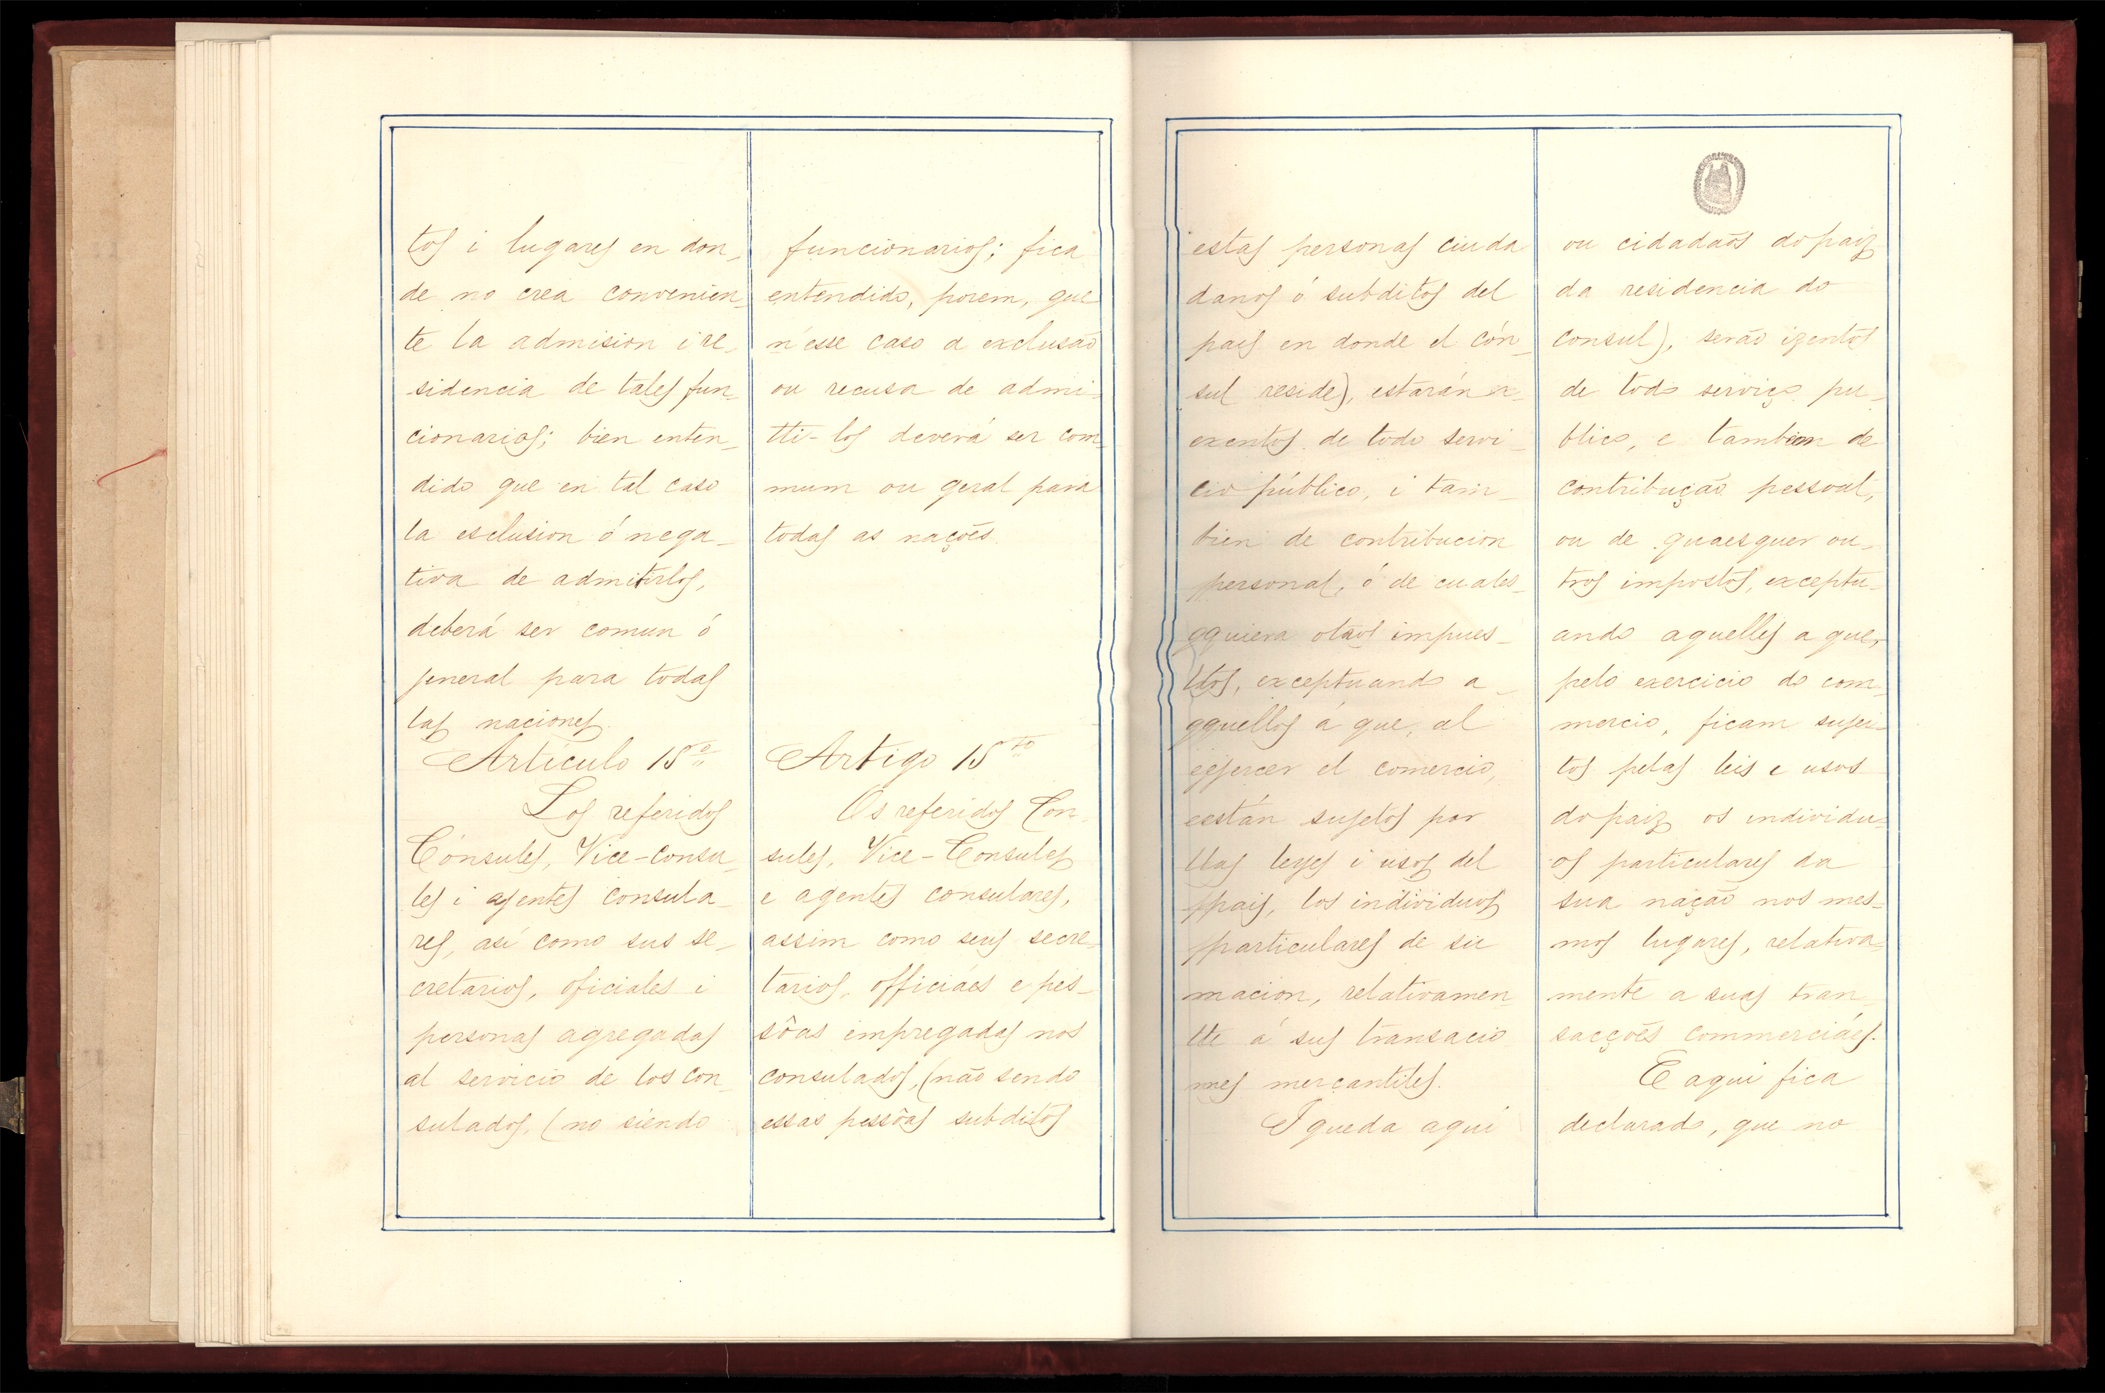 tos i lugares en don_
de no crea convenien_
te la admision i re_
sidencia de tales fun_
cionarios; bien enten_
dido que en tal caso
la esclusion ó nega_
tiva de admitirlos,
deberá ser comun ó
jeneral para todas
las naciones.
Artículo 15º
Los referidos
Cónsules, Vice-consu_
les i ajentes consula_
res, así como sus se_
cretarios, oficiales i
personas agregadas
al servicio de los con_
sulados, (no siendo
funcionarios; fica
entendido, porem, que
n'esse caso a exclusão
ou recusa de admi_
tti-los deverá ser com_
mum ou geral para
todas as nações.
Artigo 15to
Os referidos Con_
sules, Vice-Consules
e agentes consulares,
assim como seus secre_
tarios, officiáes e pes_
sôas empregadas nos
consulados, (não sendo
essas pessôas subditos
estas personas ciuda
danos ó subditos del
pais en donde el cón_
sul reside), estarán e_
exentos de todo servi_
cio público, i tam_
bien de contribucion
personal, ó de cuales_
qquiera otros impues_
ttos, exceptuando a_
qquellos á que, al
eejercer el comercio,
eestán sujetos por
llas leyes i usos del
ppais, los individuos
pparticulares de su
nnacion, relativamen_
tte á sus transacio
nnes mercantiles.
I queda aquí
ou cidadãos do paiz
da residencia do
consul), serão izentos
de todo serviço pu_
blico, e tambem de
contribuição pessoal,
ou de quaesquer ou_
tros impostos, exceptu_
ando aquelles a que,
pelo exercicio do com_
mercio, ficam sujei_
tos pelas leis e usos
do paiz os individu_
os particulares da
sua nação nos mes_
mos lugares, relativa_
mente a suas tran_
sacções commerciáes.
E aqui fica
declarado, que no